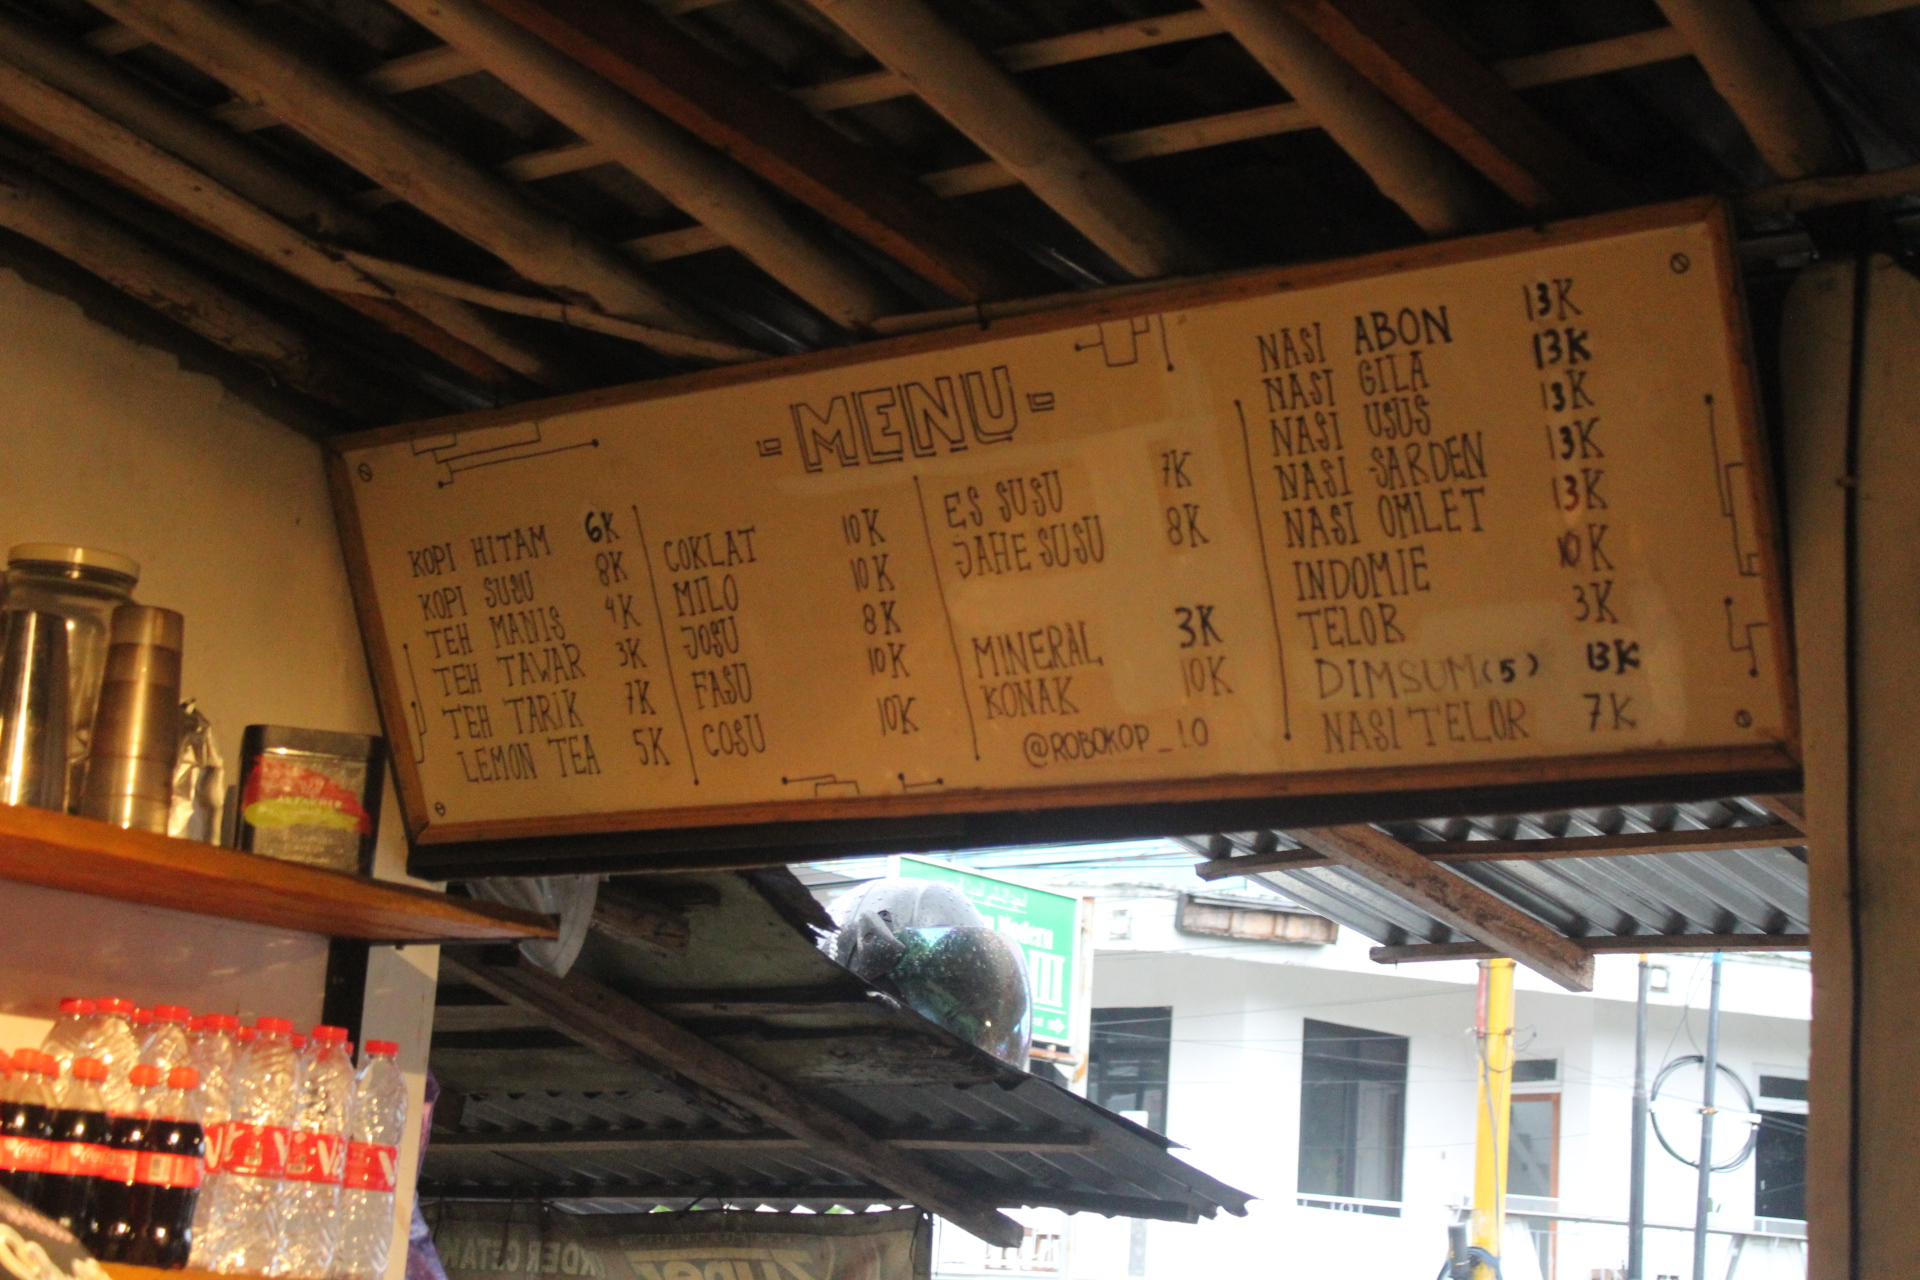 MENU
KOPI HITAM 6K
KOPI SUSU 8K
TEH MANIS 4K
TEH TAWAR 3K
TEH TARIK 7K
LEMON TEA 5K
COKLAT 10K
MILO 10K
JOSU 8K
FASU 10K
COSU 10K
ES SUSU 7K
JAHE SUSU 8K
MINERAL 3K
KONAK 10K
@ROBOKOP_1.0
NASI ABON 13K
NASI GILA 13K
NASI USUS 13K
NASI SARDEN 13K
NASI OMLET 13K
INDOMIE 10K
TELOR 3K
DIMSUM (5) 13K
NASI TELOR 7K